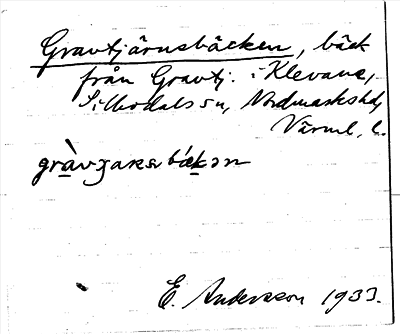 Gravtjärnsbäcken, bäck
från Gravtj. i Klevane,
Silbodals sn, Nordmarks hd,
Värml. l.
E. Andersson 1933.